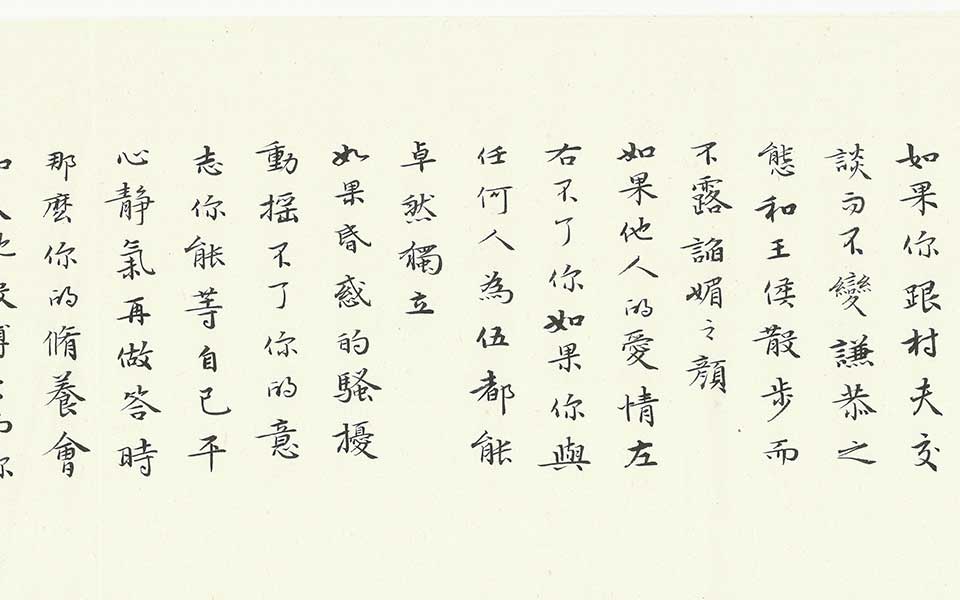 如果你跟村夫交
談而不變謙恭之
態和王侯散步而
不露諂媚之顏
如果他人的愛情左
右不了你如果你與
任何人為伍都能
卓然獨立
如果昏惑的騷擾
動搖不了你的意
志你能等自己平
心靜氣再做答時
那麼你的脩養會